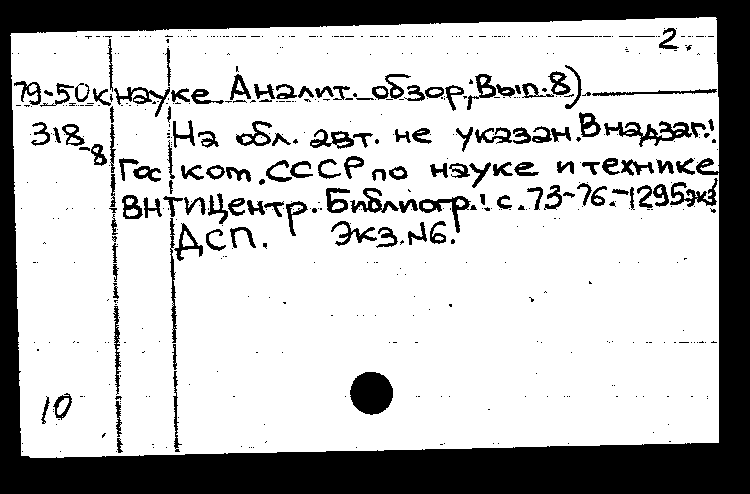 2.
79-50к науке Аналит. обзор; Вып. 8)
318-8 На обл. авт. не указан. В надзаг.:
Гос. ком. СССР по науке и технике
ВНТИЦентр. Библиогр.: с. 73-76. - 1295 экз
ДСП. Экз. №6.
10